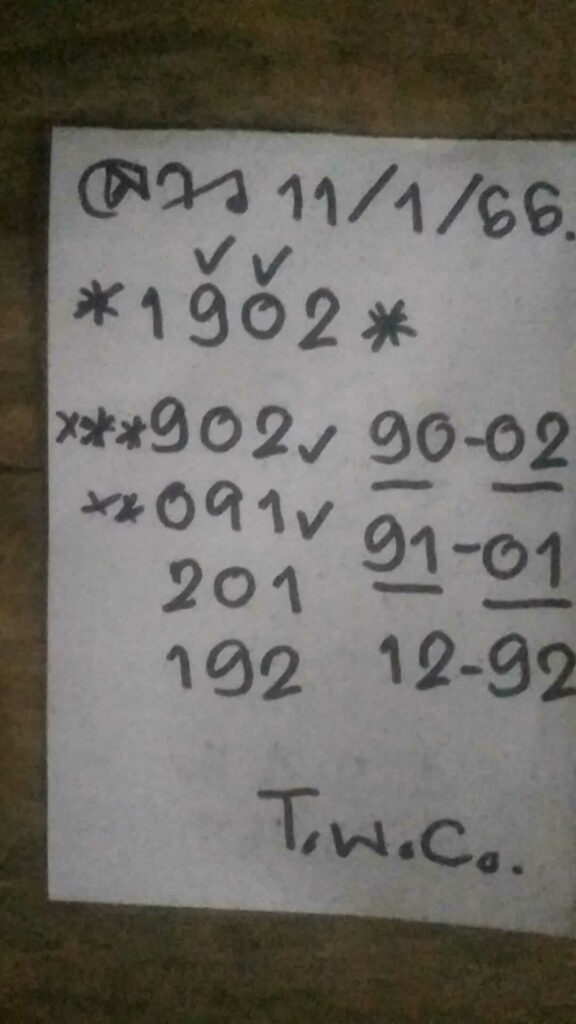 ลาว 11/1/66.
✓ ✓
*1902*
***902✓ 90-02
**091✓ 91-01
201
192 12-92
T.W.C..